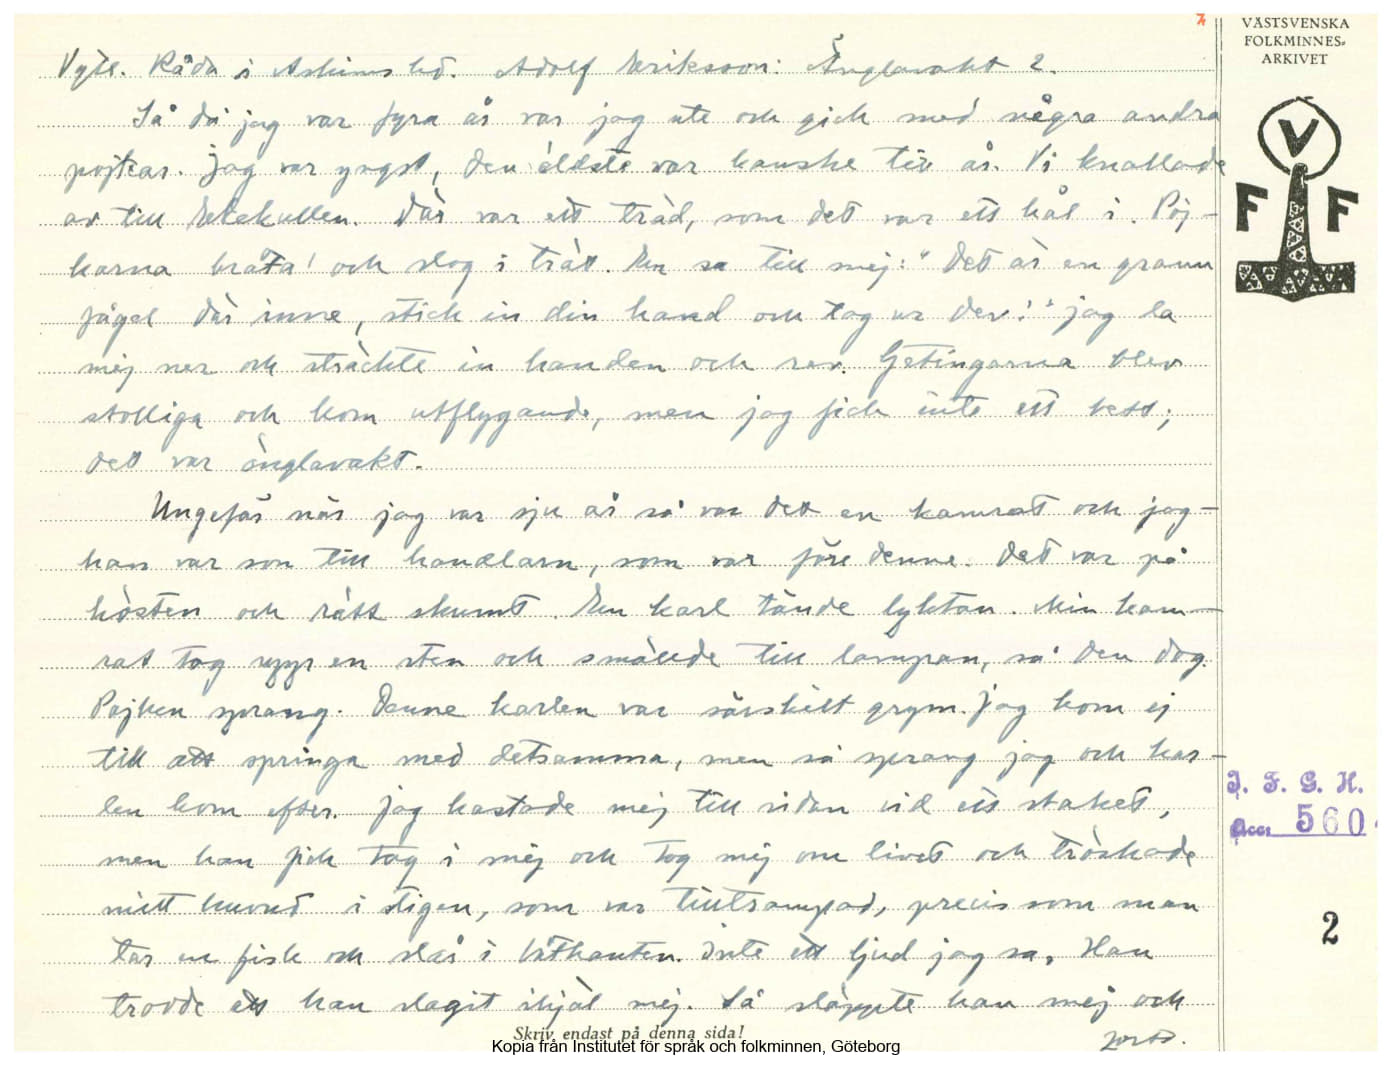 7
VÄSTSVENSKA
FOLKMINNES-
ARKIVET
V
F F
Vgtl. Råda i Askims hd. Adolf Eriksson: Änglavakt 2.
Så då jag var fyra år var jag ute och gick med några andra
pojkar. Jag var yngst, den äldste var kanske tie år. Vi knallade
av till Ekekullen. Där var ett träd, som det var ett hål i. Poj-
karna och slog i trät. En sa till mej: "Det är en grann
fågel där inne, stick in din hand och tag ur den!" Jag la
mej ner och sträckte in handen och rev. Getingarna blev
stolliga och kom utflygande, men jag fick inte ett bett,
det var änglavakt.
Ungefär när jag var sju år så var det en kamrat och jag-
han var son till handlarn, som var före denne. Det var på
hösten och rätt skumt. En karl tände lyktan. Min kam-
rat tog upp en sten och smällde till lampan, så den dog.
Pojken sprang. Denne karlen var särskilt grym. Jag kom ej
till att springa med detsamma, men så sprang jag och kar-
len kom efter. Jag kastade mej till sidan vid ett staket,
men han fick tag i mej och tog mej om livet och tröskade
mitt huvud i stigen, som var tilltrampad, precis som man
tar en fisk och slår i båtkanten. Inte ett ljud jag sa. Han
trodde att han slagit ihjäl mej. Så släppte han mej och
forts.
I. F. G. H.
Acc. 560
2
Skriv endast på denna sida!
Kopia från Institutet för språk och folkminnen, Göteborg